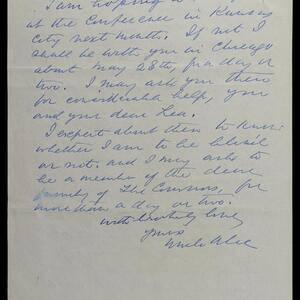 I am hoping
at the Conference in Kansas
City next month. If not I
shall be with you in Chicago
about May 28th, for a day or
two. I may ask you there
for considerable help, you
and your dear Lea.
I expect about then to know
whether I am to be
or not. and I may ask to
be a member of the dear
family of The Cousins, for
more than a day or two.
with lovely love
yours
Uncle Alec